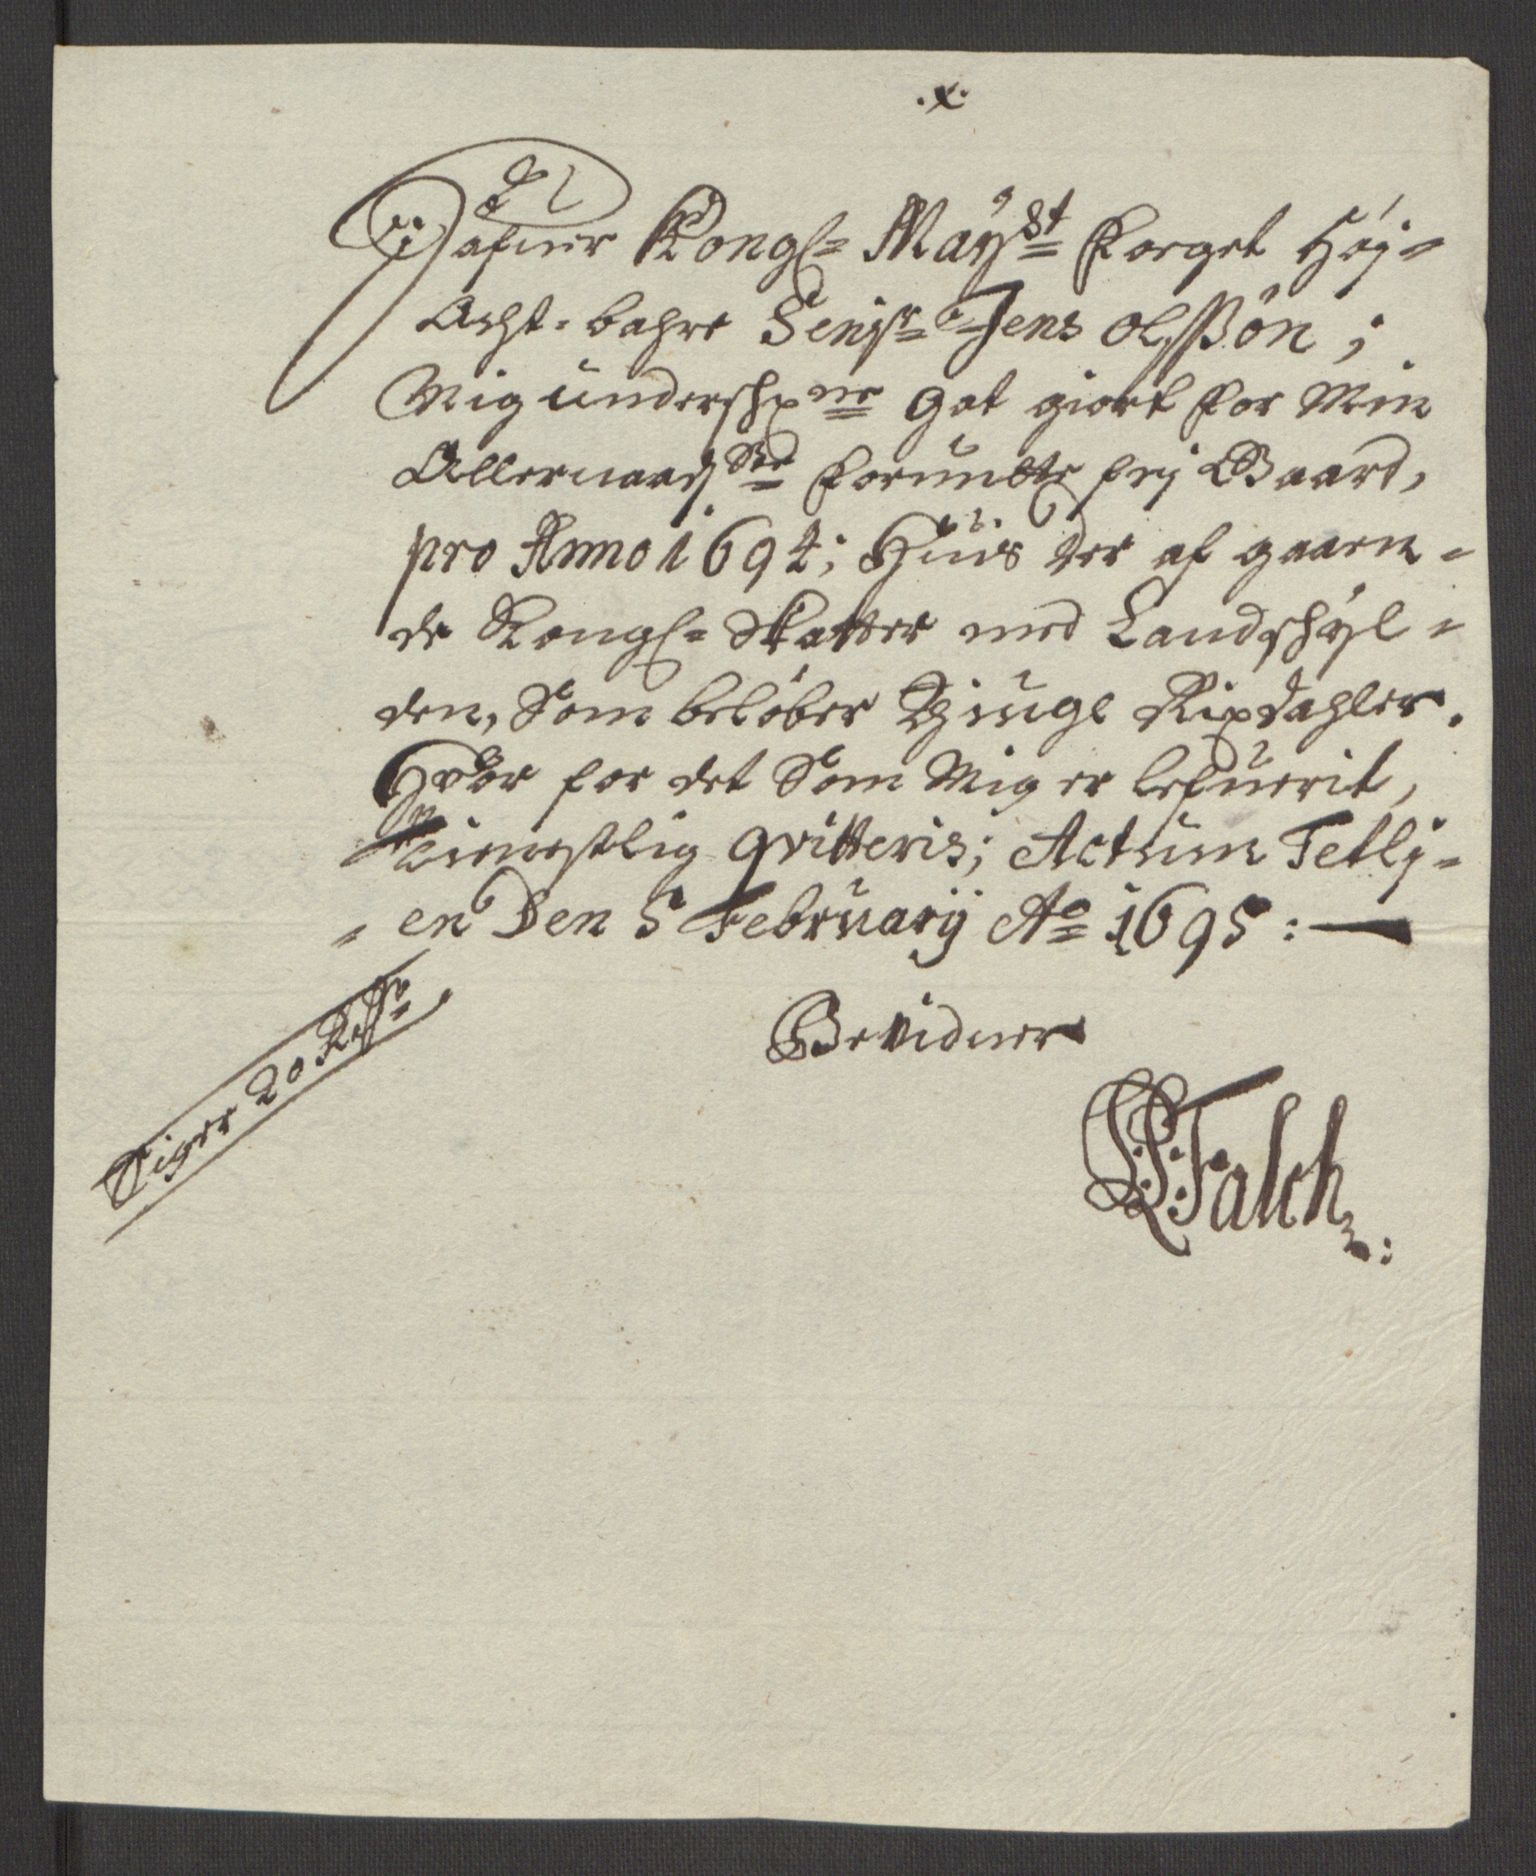 .x.
Hafuer Kongl= Maÿst Forget Höj=
Acht-bahre Senjr= Jens Olßøn;
Mig underschrne got giort for Min
Allernaadste forundte frj Gaard,
pro Anno 1694; Huis der af gaaen=
de Kongl= Skatter med Landschÿl=
den, Som beløber Tÿiuge Rixdahler.
Hvor for det Som Mig er lefuerit,
tienestlig qvitteris; Actum Tellj=
= en Den 5 Februarij Ao 1695:
Bevidner
Siger 20 Rdr
Falch: